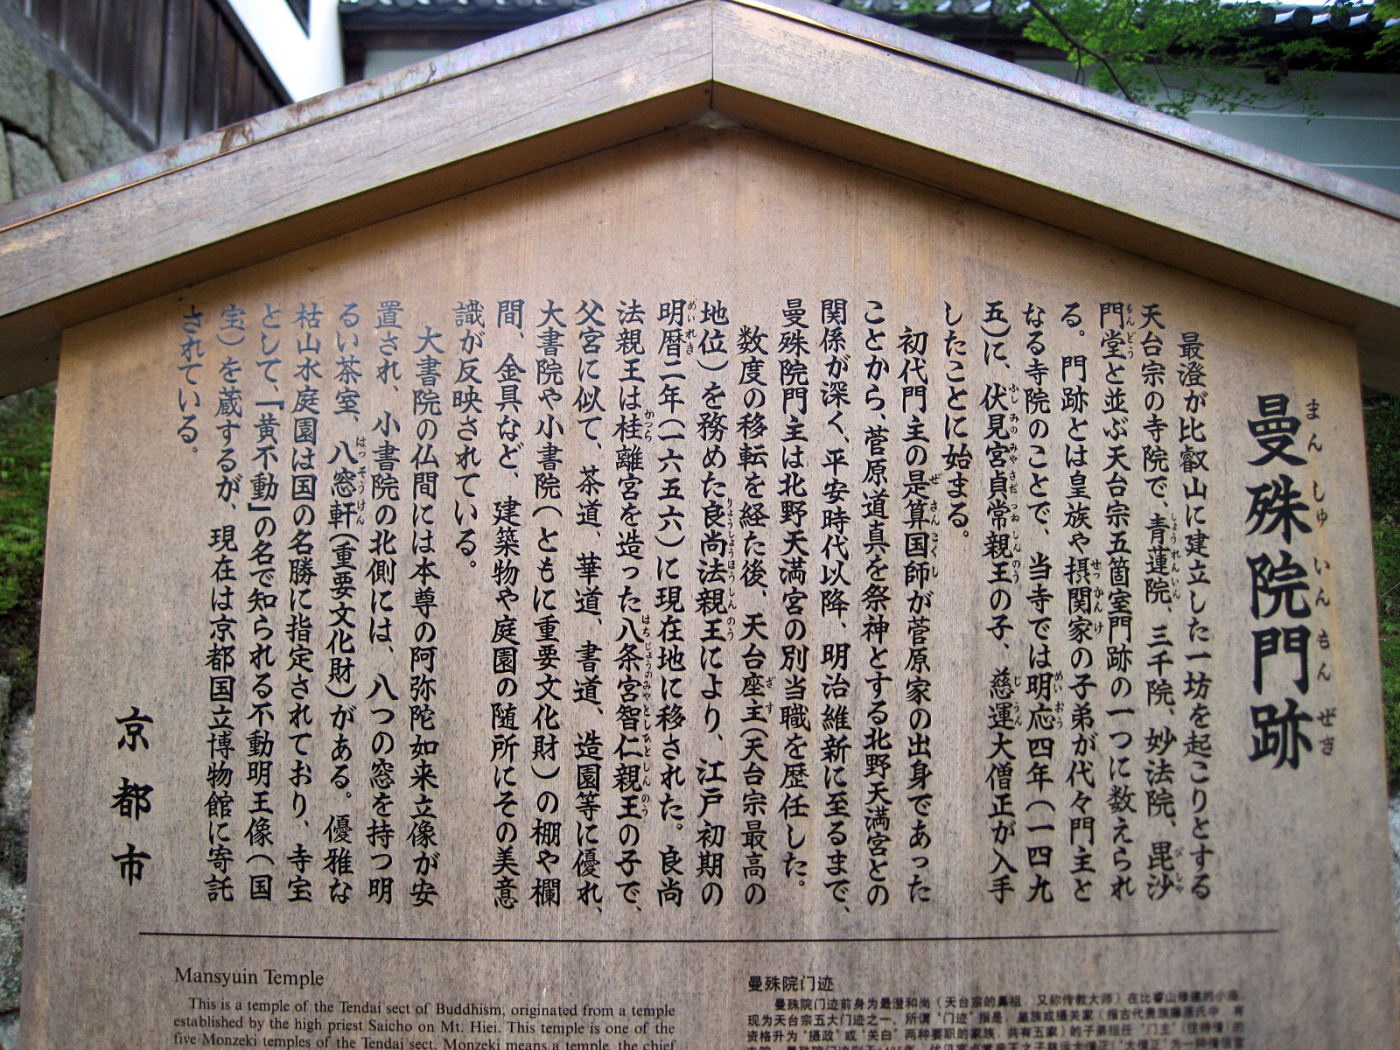 曼殊院門跡
まんしゅいんもんぜき
最澄が比叡山に建立した一坊を起こりとする
天台宗の寺院で、青蓮院、三千院、妙法院、毘沙
門堂と並ぶ天台宗五箇室門跡の一つに数えられ
る。門跡とは皇族や摂関家の子弟が代々門主と
なる寺院のことで、当寺では明応四年(一四九
五)に、伏見宮貞常親王の子、慈運大僧正が入手
したことに始まる。
初代門主の是算国師が菅原家の出身であった
ことから、菅原道真を祭神とする北野天満宮との
関係が深く、平安時代以降、明治維新に至るまで、
曼殊院門主は北野天満宮の別当職を歴任した。
数度の移転を経た後、天台座主(天台宗最高の
地位)を務めた良尚法親王により、江戸初期の
明暦二年(一六五六)に現在地に移された。良尚
法親王は桂離宮を造った八条宮智仁親王の子で、
父宮に似て、茶道、華道、書道、造園等に優れ、
大書院や小書院(ともに重要文化財)の棚や欄
間、金具など、建築物や庭園の随所にその美意
識が反映されている。
大書院の仏間には本尊の阿弥陀如来立像が安
置され、小書院の北側には、八つの窓を持つ明
るい茶室、八窓軒(重要文化財)がある。優雅な
枯山水庭園は国の名勝に指定されており、寺宝
として、「黄不動」の名で知られる不動明王像(国
宝)を蔵するが、現在は京都国立博物館に寄託
されている。
京都市
Mansyuin Temple
This is a temple of the Tendai sect of Buddhism, originated from a temple
established by the high priest Saicho on Mt. Hiei. This temple is one of the
five Monzeki temples of the Tendai sect. Monzeki means a temple, the chief
曼殊院门迹
曼殊院门迹前身为最澄和尚(天台宗的鼻祖，又称传教大师)在比睿山修建的小庙，
现为天台宗五大门迹之一。所谓"门迹"指是，皇族或摄关家(指古代贵族藤原氏中，有
资格升为"摄政"或"关白"两种要职的家族，共有五家)的子弟担任"门主"(住持僧)的